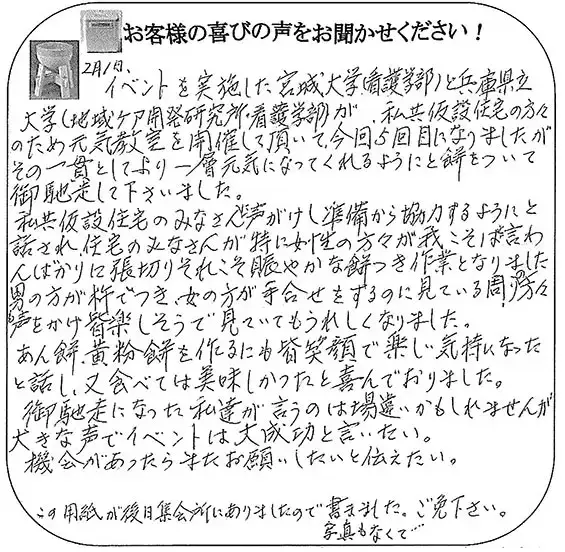 お客様の喜びの声をお聞かせください！
2月1日、
イベントを実施した宮城大学(看護学部)と兵庫県立
大学(地域ケア開発研究所・看護学部)が、私共仮設住宅の方々
のため元気教室を開催して頂いて、今回5回目になりましたが
その一貫としてより一層元気になってくれるようにと餅をついて
御馳走して下さいました。
私共仮設住宅のみなさんに声がけし準備から協力するようにと
話され、住宅のみなさんが特に女性の方々が我こそは言わ
んばかりに張切りそれこそ賑やかな餅つき作業となりました
男の方が杵でつき、女の方が手合せをするのに見ている周りの方々
声をかけ皆楽しそうで見ていてもうれしくなりました。
あん餅、黄粉餅を作るにも皆笑顔で楽しい気持になった
と話し、又食べては美味しかったと喜んでおりました。
御馳走になった私達が言うのは場違いかもしれませんが
大きな声でイベントは大成功と言いたい。
機会があったらまたお願いしたいと伝えたい。
この用紙が後日集会所にありましたので書きました。ご免下さい。
写真もなくて…